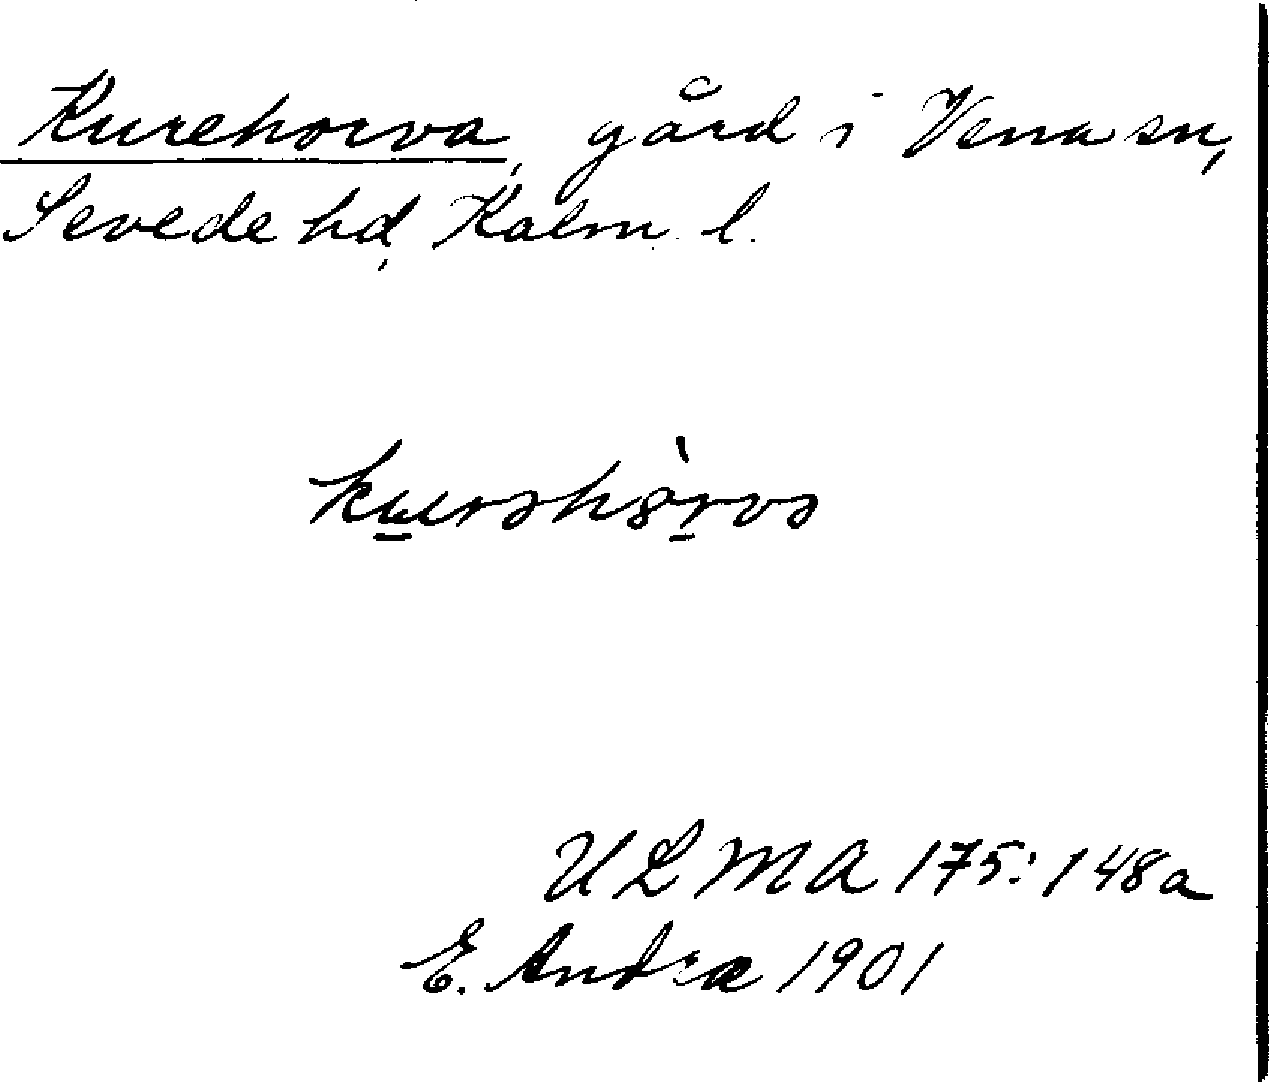 Kurehorva, gård i Vena sn,
Sevede hd, Kalm. l.
kurəhòrvə
ULMA 175:148a
E. Andræ 1901